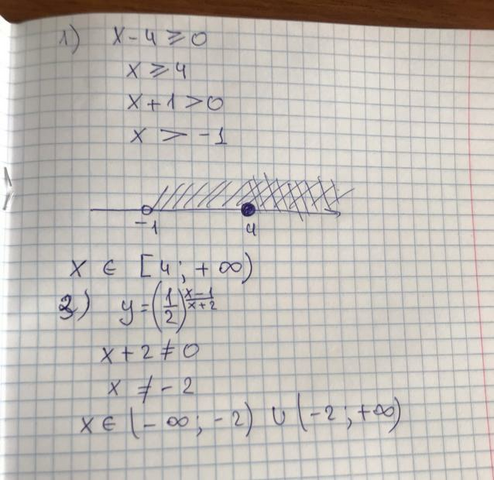 1) x - 4 ≥ 0
x ≥ 4
x + 1 > 0
x > -1
-1 4
x ∈ [4; +∞)
2) y = (1/2)^((x-1)/(x+2))
x + 2 ≠ 0
x ≠ -2
x ∈ (-∞; -2) ∪ (-2; +∞)